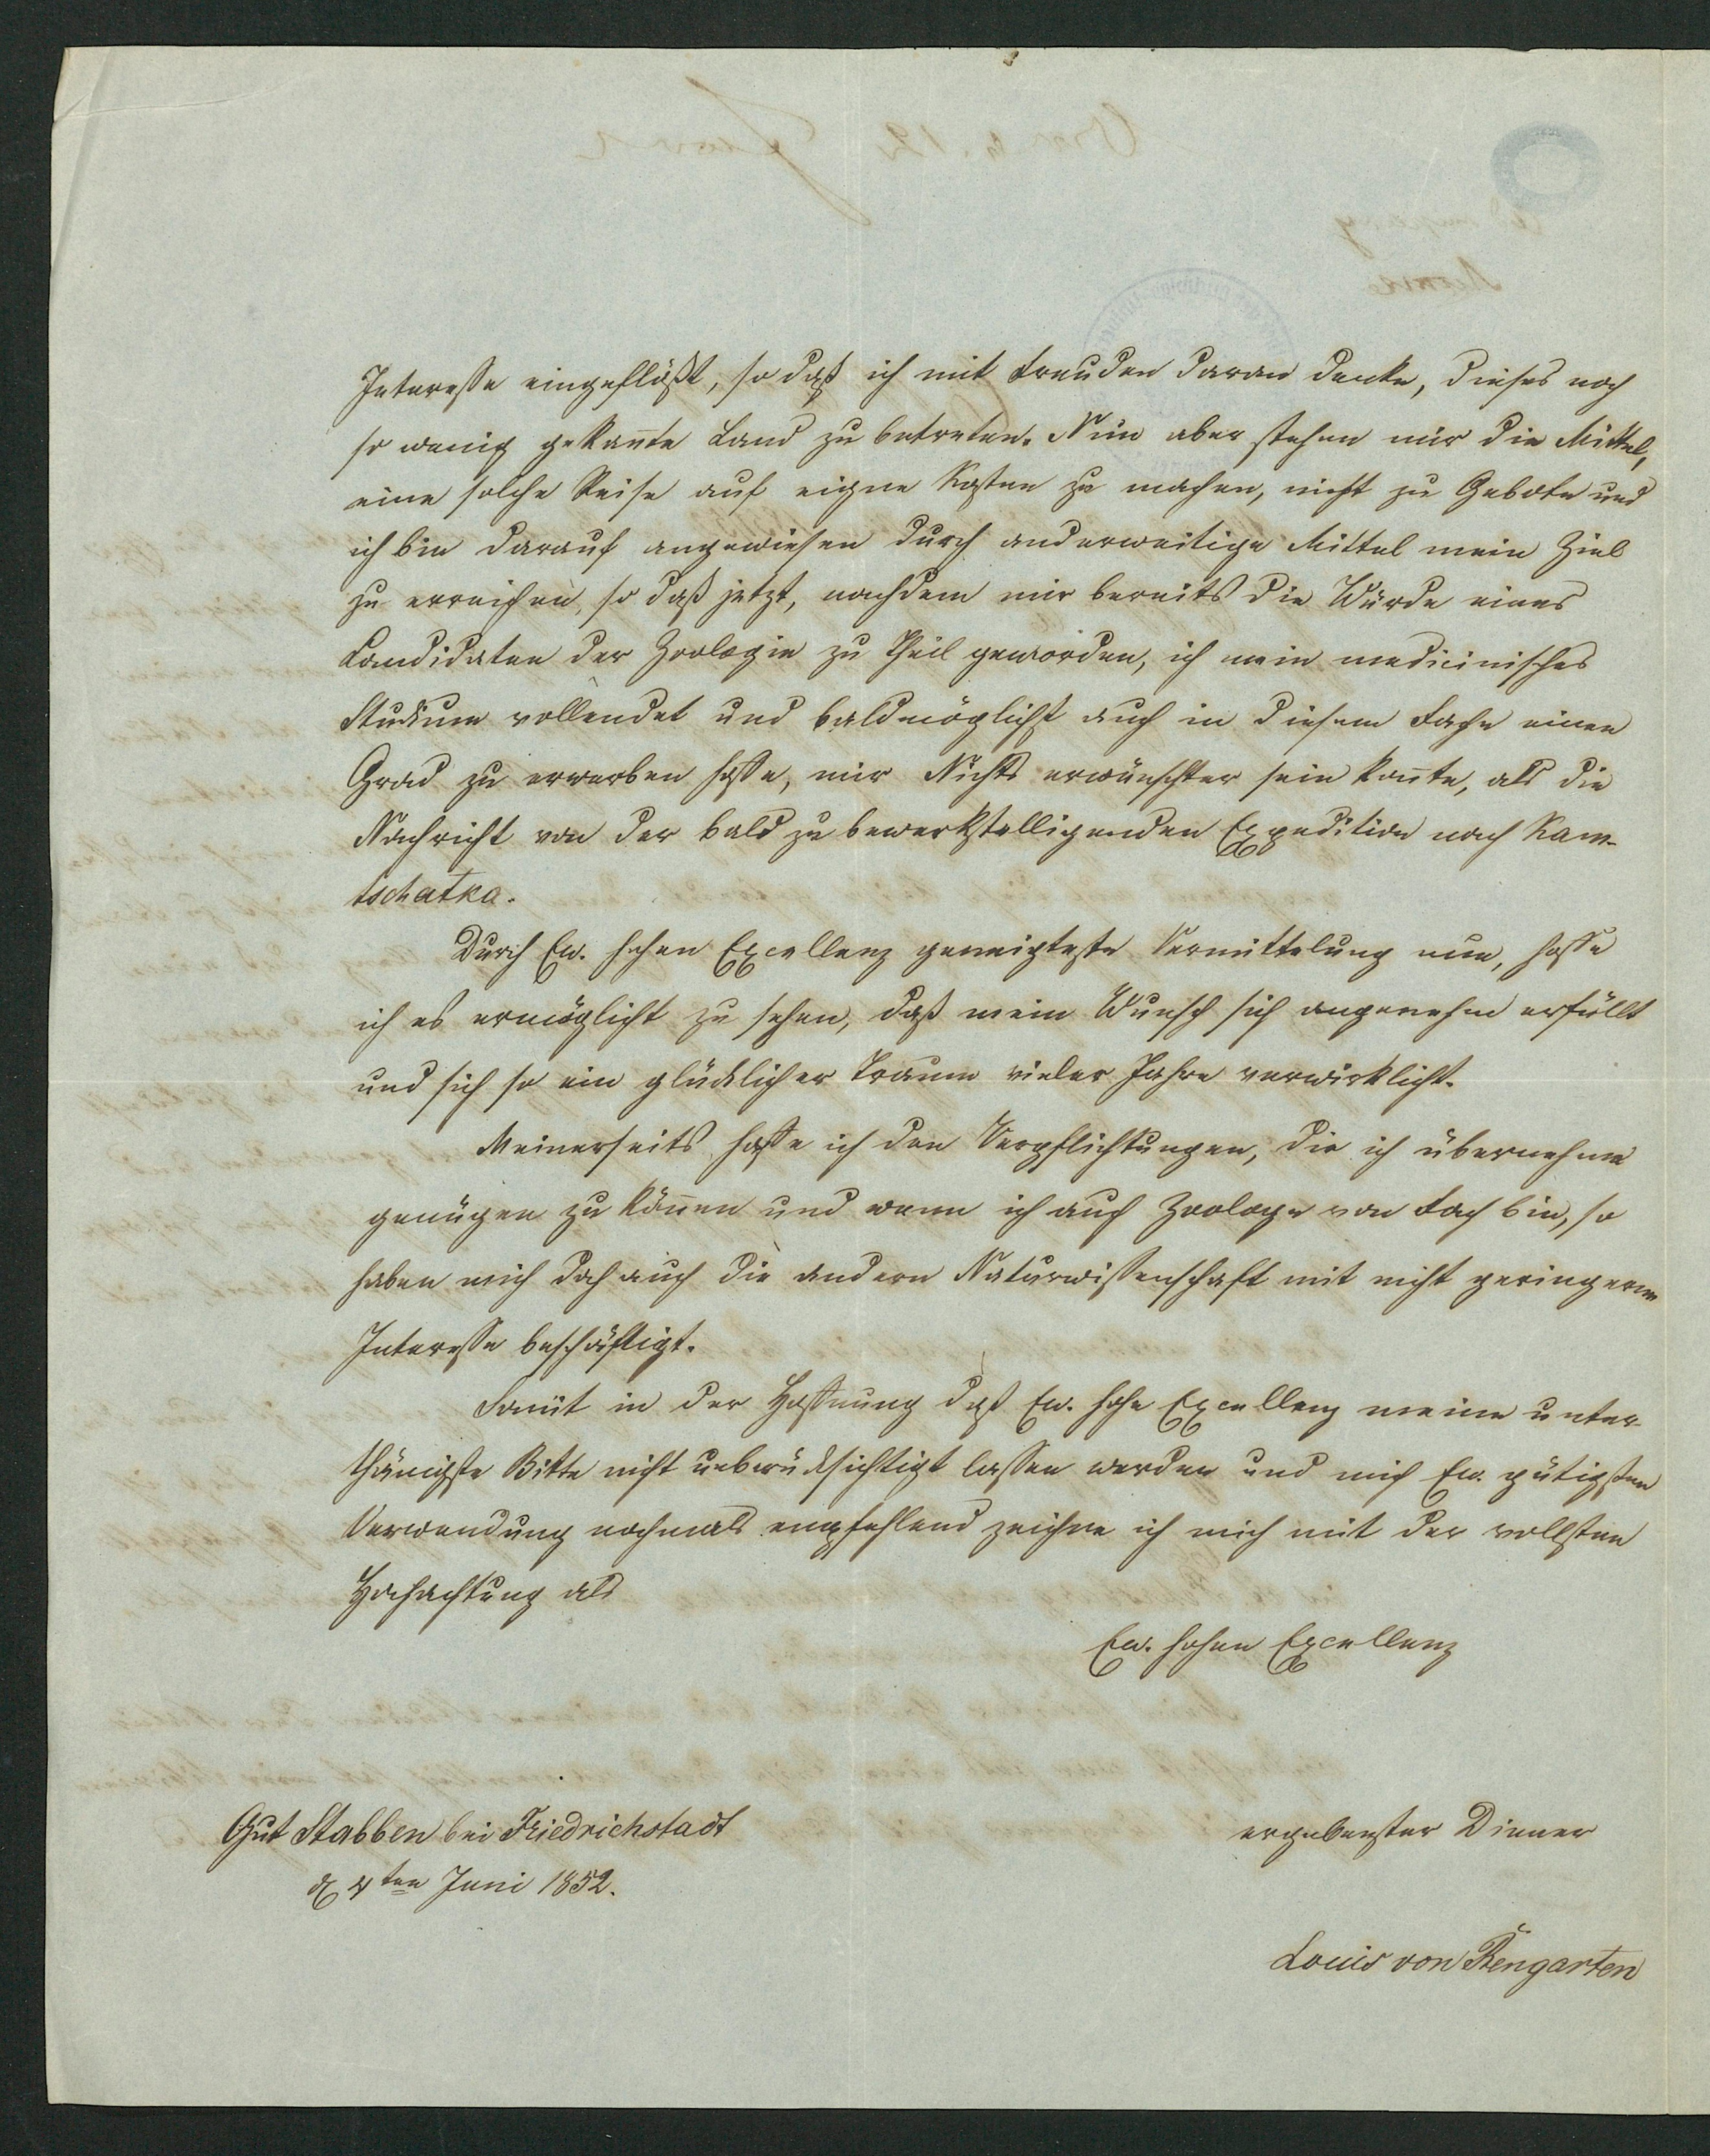 Interesse eingeflößt, so daß ich mit Freuden daran denke, dieses noch
so wenig gekan̄te Land zu betreten. Nun aber stehen mir die Mittel,
eine solche Reise auf eigne Kosten zu machen, nicht zu Gebote und
ich bin darauf angewiesen durch anderweitige Mittel mein Ziel
zu erreichen, so daß jetzt, nachdem mir bereits die Würde eines
Candidaten der Zoologie zu Theil geworden, ich mein medicinisches
Studium vollendet und baldmöglichst auch in diesem Fache einen
Grad zu erwerben hoffe, mir Nichts erwünschter sein kon̄te, als die
Nachricht von der bald zu bewerkstelligenden Expedition nach Kam-
tschatka.
Durch Ew. hohen Excellenz geneigteste Vermittelung nun, hoffe
ich es ermöglicht zu sehen, daß mein Wunsch sich angenehm erfüllt
und sich so ein glücklicher Traum vieler Jahre verwirklicht.
Meinerseits hoffe ich den Verpflichtungen, die ich übernehme
genügen zu kön̄en und wenn ich auch Zoologe von Fach bin, so
haben mich doch auch die andern Naturwissenschaft mit nicht geringerem
Interesse beschäftigt.
Somit in der Hoffnung daß Ew. hohe Excellenz meine unter-
thänigste Bitte nicht unberücksichtigt lassen werden und mich Ew. gütigsten
Verwendung nochmals empfehlend zeichne ich mich mit der vollsten
Hochachtung als
Ew. hohen Excellenz
Gut Stabben bei Friedrichstadt
d 4ten Juni 1852.
ergebenster Diener
Louis von Rengarten